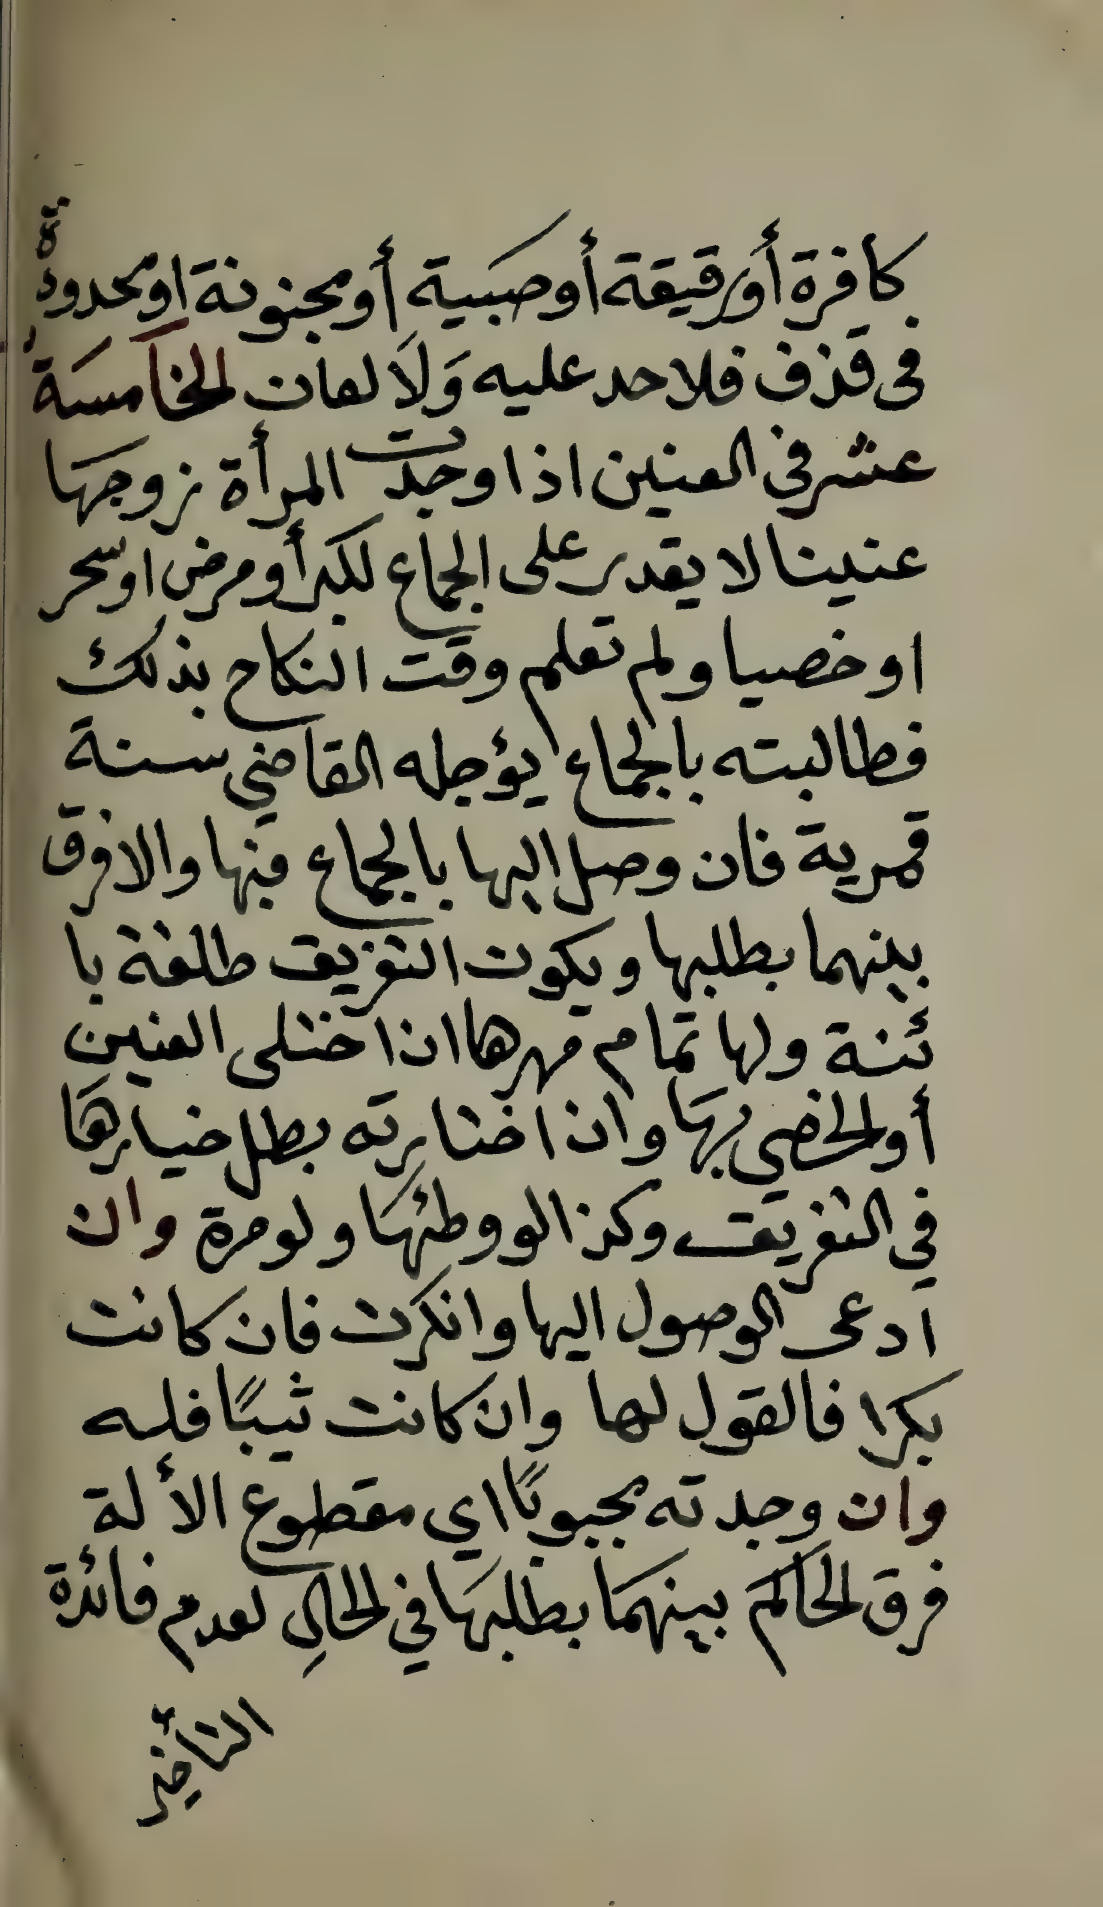 كافرة أورقيقة أوصبية أومجنونة اومحدودة
فى قذف فلاحد عليه وَلَا لعان الخامسَة
عشر في العنين اذا وجدت المرأة زوجهَا
عنينا لا يقدر على الجماع لكبر أومرض اوسحر
او خصيا ولم تعلم وقت النكاح بذلك
فطالبته بالجماع يؤجله القاضي سنة
قمرية فان وصل اليها بالجماع فيها والا فرق
بينهما بطلبها ويكون التفريق طلقة با
ئنة ولها تمام مهرها اذا اختلى العنين
أو الخصي بهَا وان اختارته بطل خيارهَا
في التفريق وكذا لو وطئهَا ولو مرة وان
ادعى الوصول اليها وانكرت فان كانت
بكرا فالقول لها وان كانت ثيبًا فله
وان وجدته مجبوبًا اي مقطوع الألة
فرق الحاكم بينهمَا بطلبهَا في الحالِ لعدم فائدة
التأخير